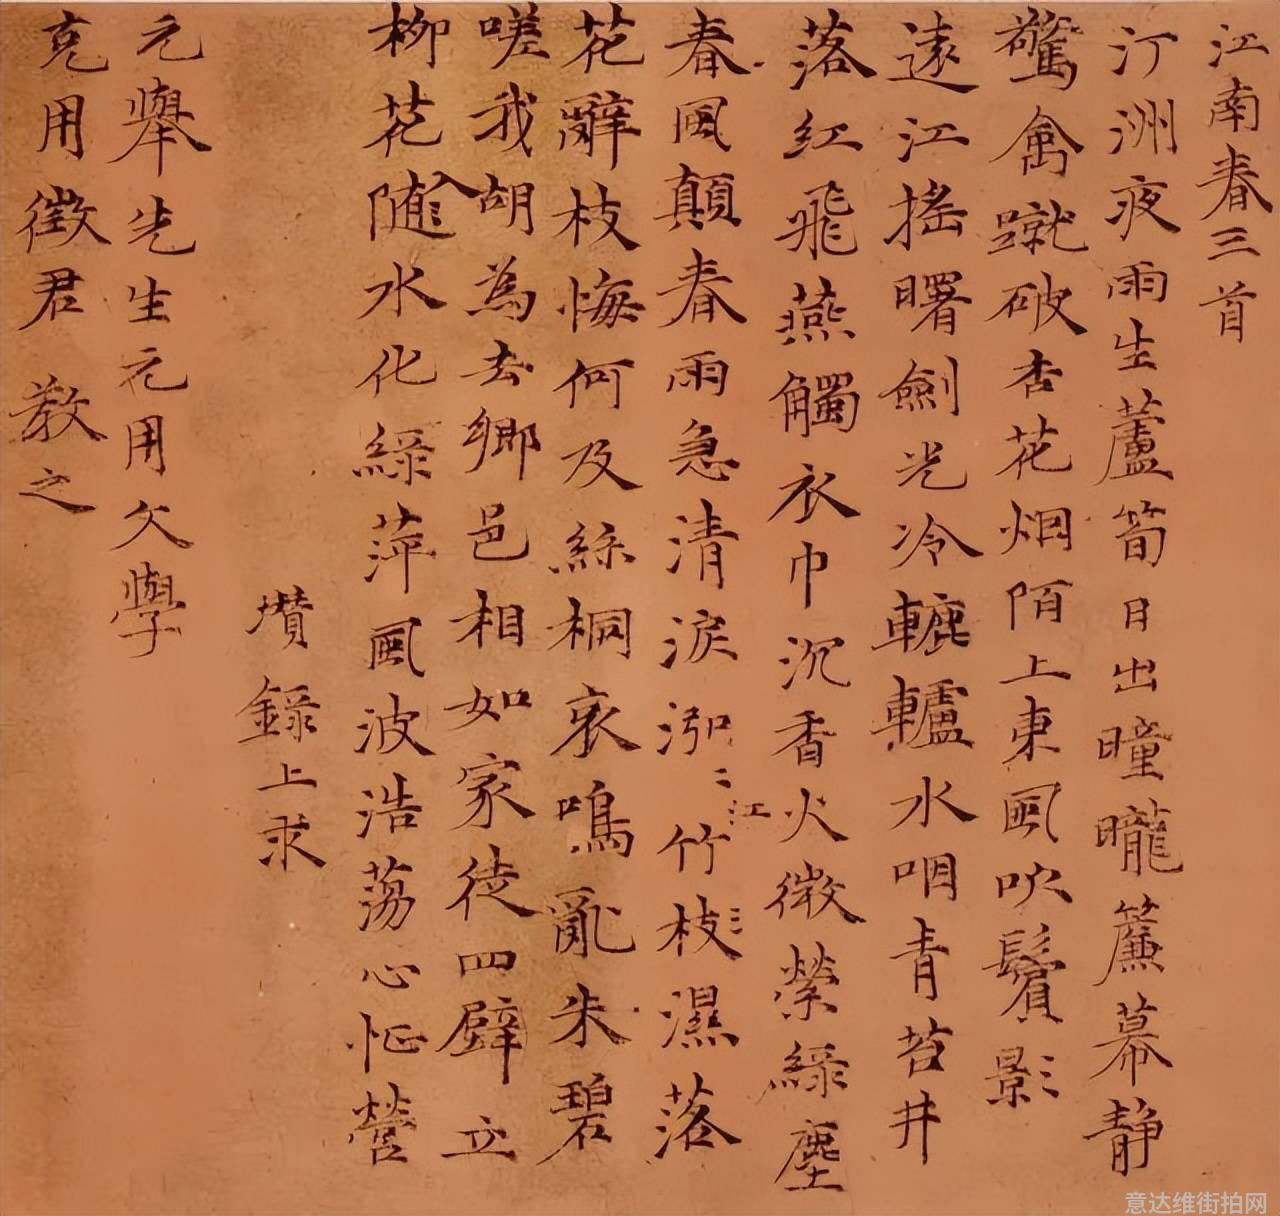 江南春三首
汀洲夜雨生蘆筍日出曈曨簾幕靜
驚禽蹴破杏花烟陌上東風吹鬢影
遠江搖曙劍光冷轆轤水咽青苔井
落紅飛燕觸衣巾沉香火微縈綠塵
春風顛春雨急清淚泓〻江竹枝濕落
花辭枝悔何及絲桐哀鳴亂朱碧
嗟我胡為去鄉邑相如家徒四壁立
柳花入随水化綠萍風波浩蕩心怔營
瓚錄上求
元舉先生元用文學
克用徵君 教之
意达维街拍网